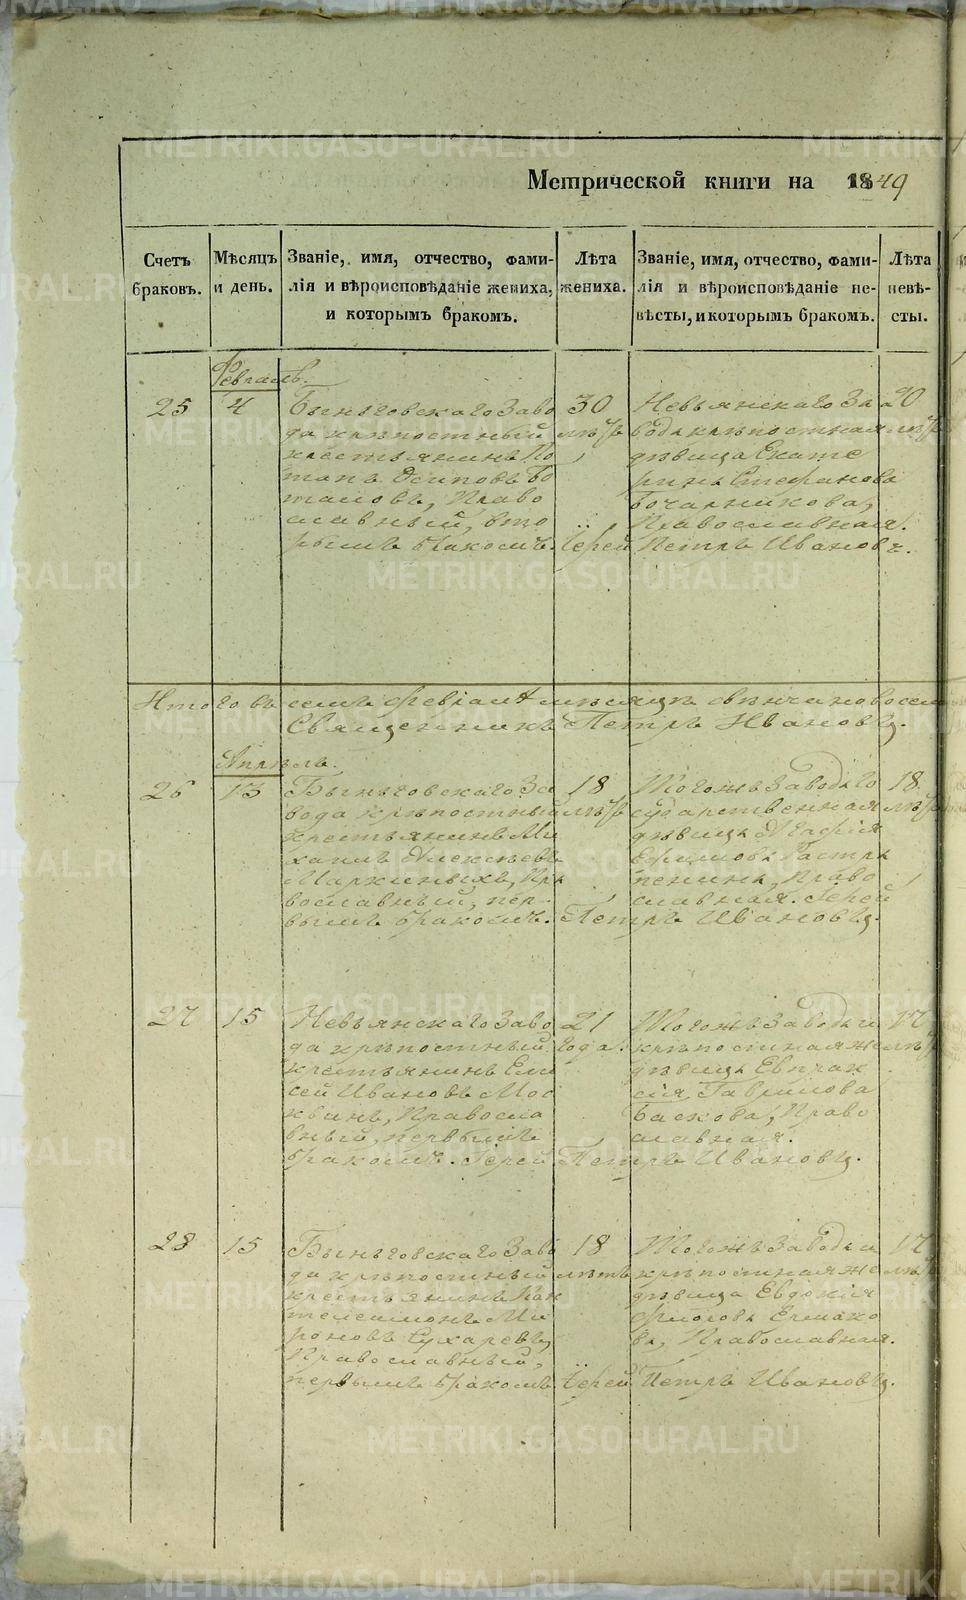 Метрической книги на 1849
Счетъ браковъ.
Мѣсяцъ и день.
Званіе, имя, отчество, фами-
лія и вѣроисповѣданіе жениха,
и которымъ бракомъ.
Лѣта жениха.
Званіе, имя, отчество, фами-
лія и вѣроисповѣданіе не-
вѣсты, и которымъ бракомъ.
Лѣта невѣ-
сты.
Февраль.
25
4
Быньговскаго Заво
да крѣпостный
крестьянинъ По
тапъ Осиповъ
Право
славный, вто
рымъ бракомъ.
30
лѣтъ
Невьянскаго За
вода крѣпостная
дѣвица Екате
рина Стефанова
Бочарникова,
Православная.
Іерей Петръ Ивановъ.
20
лѣтъ
Итого въ семъ февралѣ мѣсяцѣ вѣнчано
Священникъ Петръ Ивановъ.
Апрѣль.
26
13
Быньговскаго За
вода крѣпостный
крестьянинъ Ми
хаилъ Алексѣевъ
Маркиныхъ, Пра
вославный, пер-
вымъ бракомъ.
18
лѣтъ
Тогожъ Завода го
сударственная
дѣвица Агафія
Ефимова
Право
славная. Іерей
Петръ Ивановъ.
18
лѣтъ
27
15
Невьянскаго Заво
да крѣпостный
крестьянинъ Ели
сей Ивановъ Мос
квинъ, Правосла
вный, первымъ
бракомъ. Іерей Петръ Ивановъ.
21
года.
Тогожъ Завода и
крѣпостная же
дѣвица Евпрак
сія Гаврилова
Баскова, Право
славная.
17
лѣтъ
28
15
Быньговскаго Заво
да крѣпостный
крестьянинъ Пан
телеимонъ Ми
роновъ Сухаревъ,
Православный,
первымъ бракомъ.
18
лѣтъ
Тогожъ Завода и
крѣпостная же
дѣвица Евдокія
Фролова Ермако
ва, Православная.
Іерей Петръ Ивановъ.
17
лѣтъ
METRIKI.GASO-URAL.RU